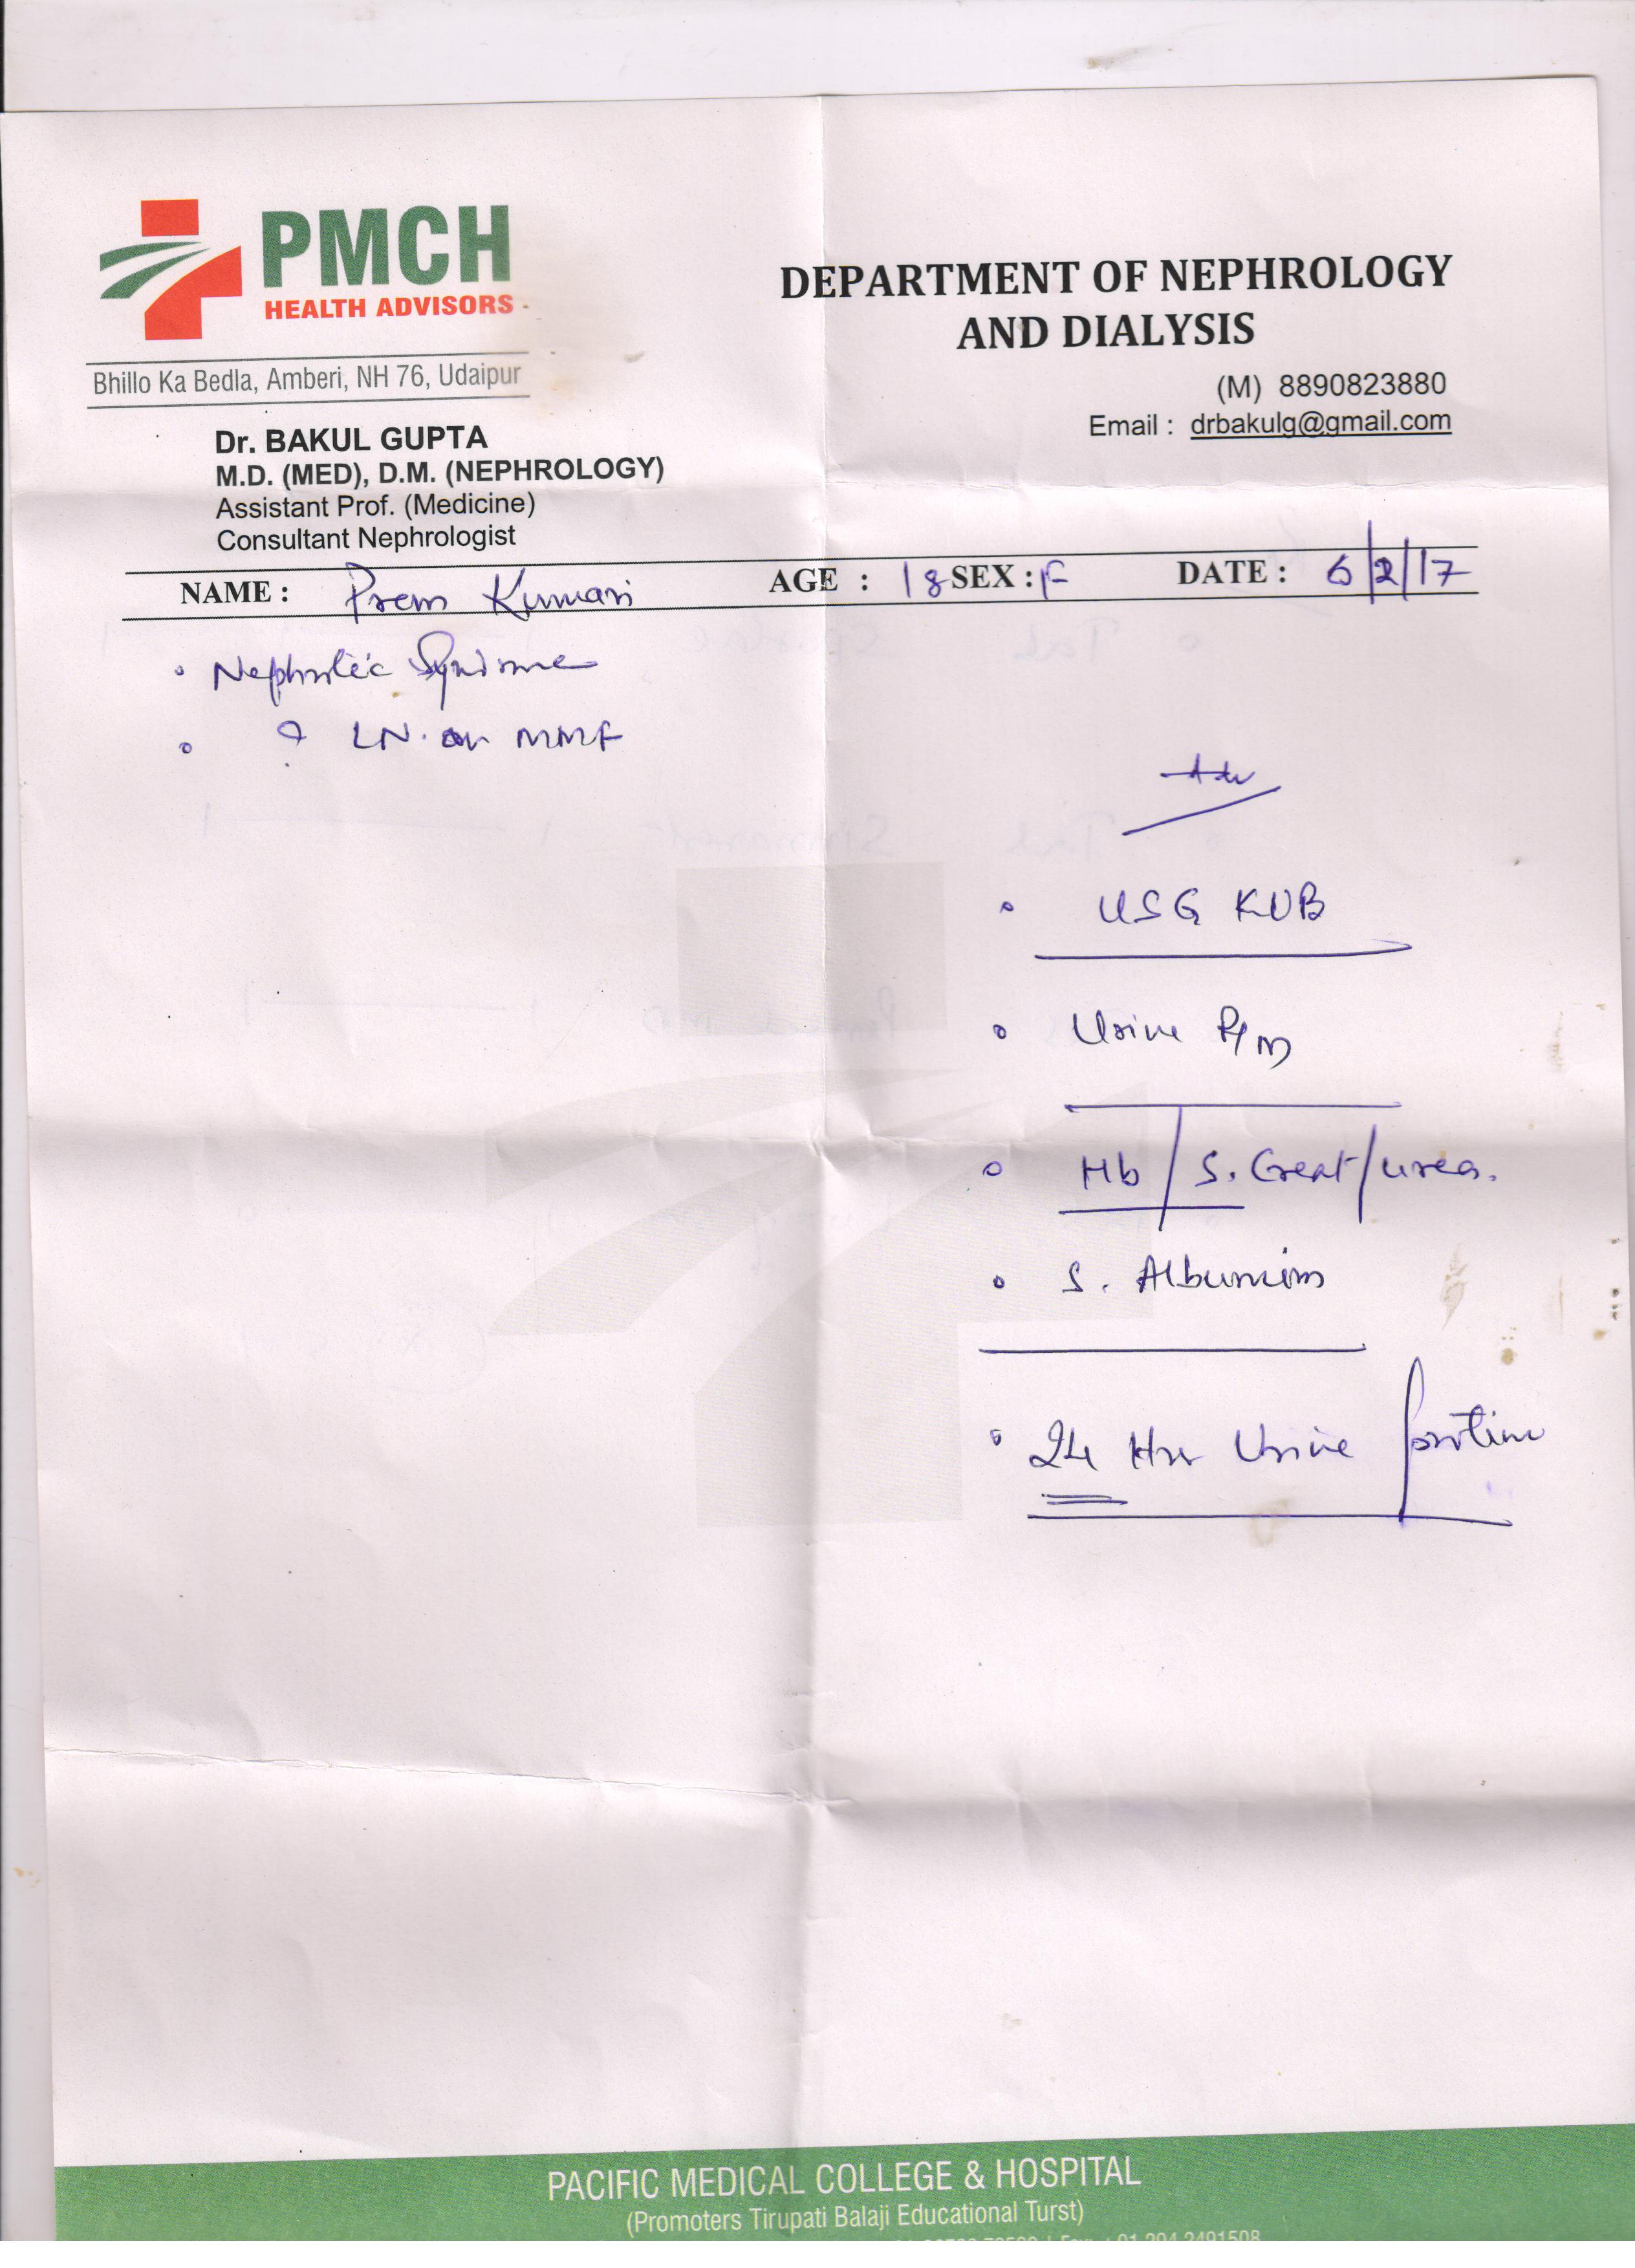 PMCH
HEALTH ADVISORS
Bhillo Ka Bedla, Amberi, NH 76, Udaipur
DEPARTMENT OF NEPHROLOGY
AND DIALYSIS
(M) 8890823880
Email : drbakulg@gmail.com
Dr. BAKUL GUPTA
M.D. (MED), D.M. (NEPHROLOGY)
Assistant Prof. (Medicine)
Consultant Nephrologist
NAME : Prem Kumari AGE : 18 SEX : F DATE : 6/2/17
• Nephrotic Syndrome
• LN. on MMF
Adv
• USG KUB
• Urine R/M
• Hb / S. Creat / urea.
• S. Albumim
• 24 Hrr Urine protine
PACIFIC MEDICAL COLLEGE & HOSPITAL
(Promoters Tirupati Balaji Educational Turst)